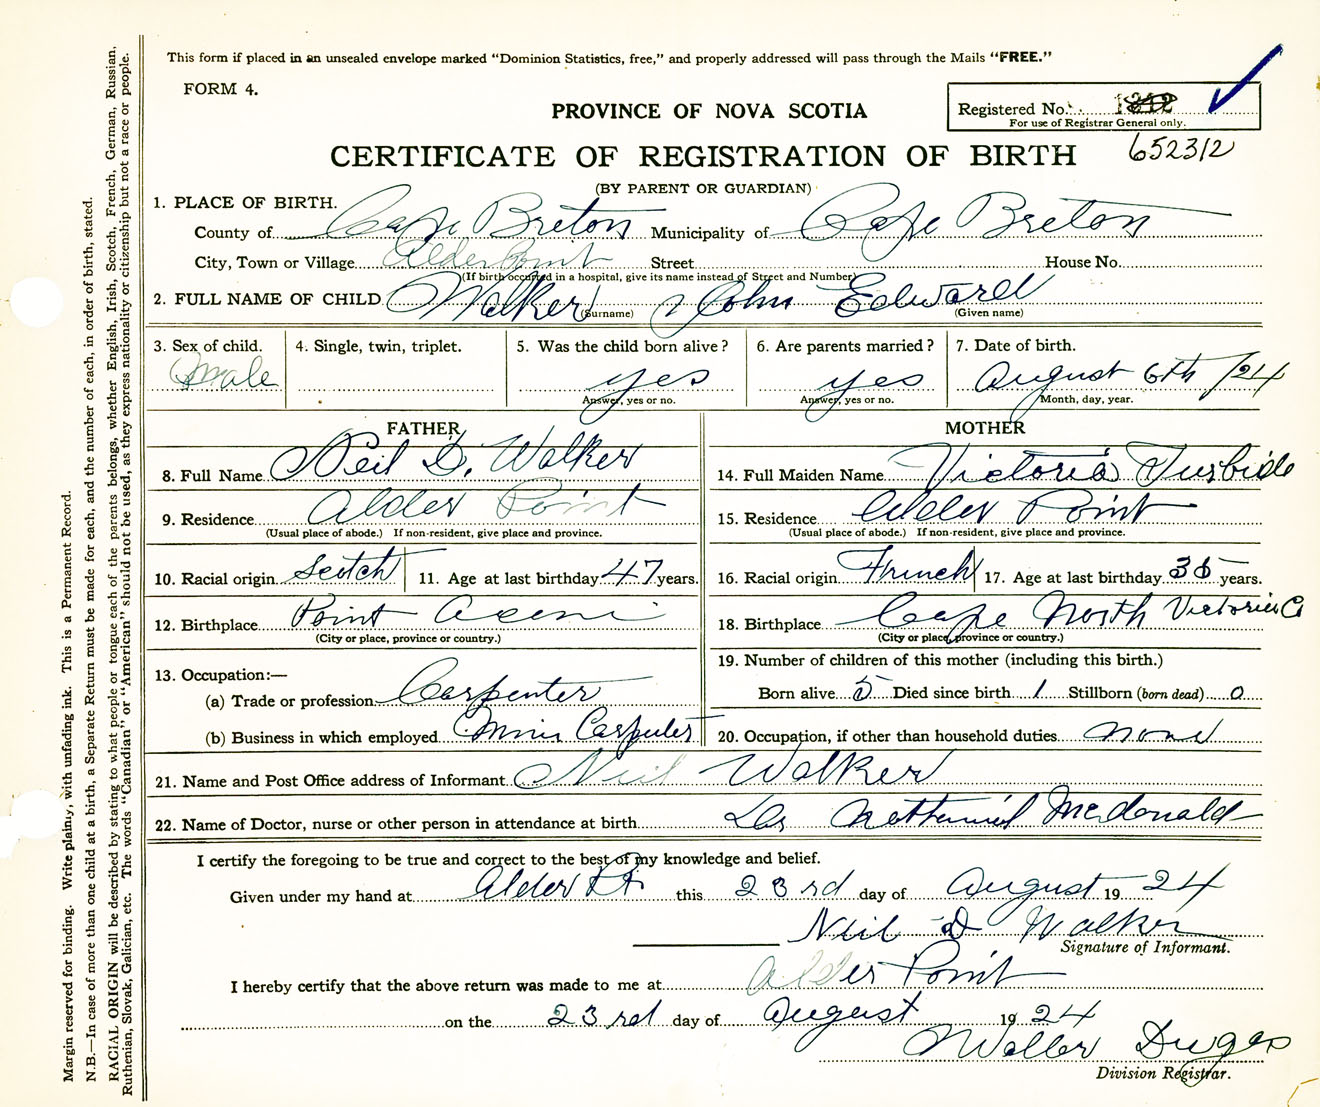 This form if placed in an unsealed envelope marked "Dominion Statistics, free," and properly addressed will pass through the Mails "FREE."
FORM 4.
PROVINCE OF NOVA SCOTIA
Registered No.
For use of Registrar General only.
652312
CERTIFICATE OF REGISTRATION OF BIRTH
(BY PARENT OR GUARDIAN)
1. PLACE OF BIRTH.
County of Cape Breton Municipality of Cape Breton
City, Town or Village Alder Point Street House No.
(If birth occurred in a hospital, give its name instead of Street and Number)
2. FULL NAME OF CHILD Walker John Edward
(Surname) (Given name)
3. Sex of child. 4. Single, twin, triplet. 5. Was the child born alive? 6. Are parents married? 7. Date of birth.
male yes yes August 6th /24
Answer, yes or no. Answer, yes or no. Month, day, year.
FATHER MOTHER
8. Full Name Neil D. Walker 14. Full Maiden Name Victoria Turbide
9. Residence Alder Point 15. Residence Alder Point
(Usual place of abode.) If non-resident, give place and province. (Usual place of abode.) If non-resident, give place and province.
10. Racial origin Scotch 11. Age at last birthday 47 years. 16. Racial origin French 17. Age at last birthday 35 years.
12. Birthplace Point Aconi 18. Birthplace Cape North Victoria Co
(City or place, province or country.) (City or place, province or country.)
13. Occupation:— 19. Number of children of this mother (including this birth.)
(a) Trade or profession Carpenter Born alive 5 Died since birth 1 Stillborn (born dead) 0
(b) Business in which employed Mine Carpenter 20. Occupation, if other than household duties none
21. Name and Post Office address of Informant Neil Walker
22. Name of Doctor, nurse or other person in attendance at birth McDonald
I certify the foregoing to be true and correct to the best of my knowledge and belief.
Given under my hand at Alder Pt. this 23rd day of August 1924
Neil D Walker
Signature of Informant.
I hereby certify that the above return was made to me at Alder Point
on the 23rd day of August 1924
Dugas
Division Registrar.
Margin reserved for binding. Write plainly, with unfading ink. This is a Permanent Record.
N.B.—In case of more than one child at a birth, a Separate Return must be made for each, and the number of each, in order of birth, stated.
RACIAL ORIGIN will be described by stating to what people or tongue each of the parents belongs, whether English, Irish, Scotch, French, German, Russian,
Ruthenian, Slovak, Galician, etc. The words "Canadian" or "American" should not be used, as they express nationality or citizenship but not a race or people.